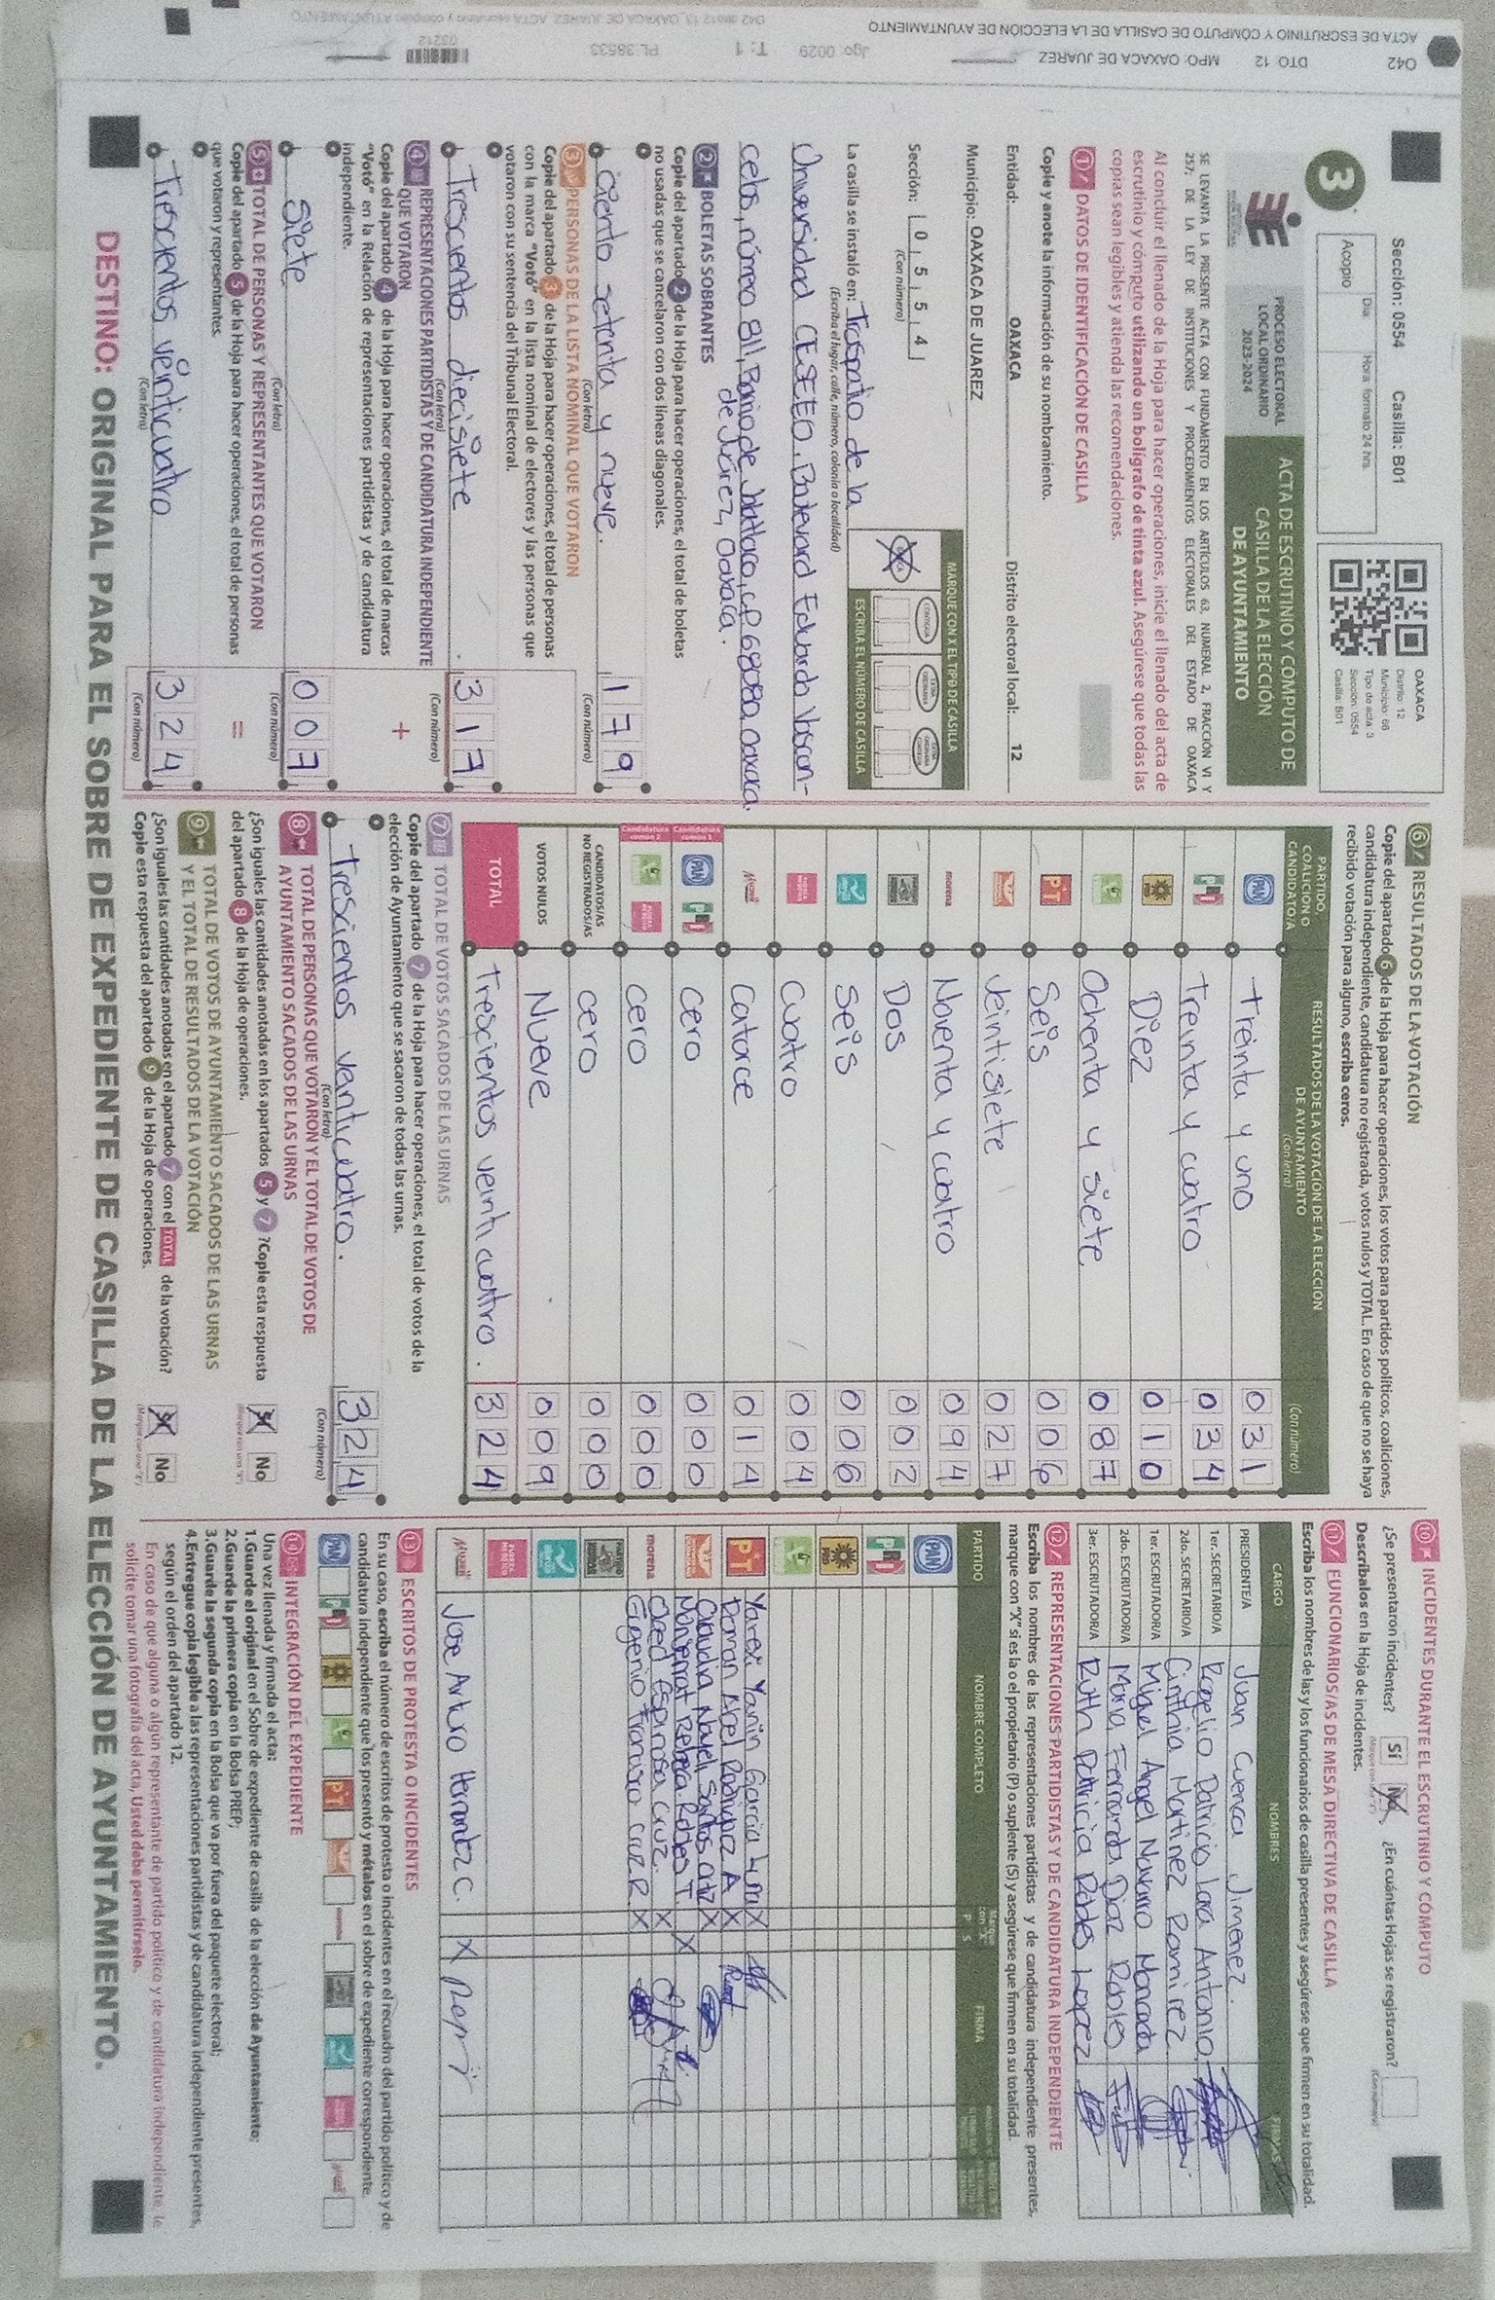 Sección: 0554 Casilla: B01
3
Acopio
Día
Hora formato 24 hrs.
OAXACA
Distrito: 12
Municipio: 68
Tipo de acta: 3
Sección: 0554
Casilla: B01
PROCESO ELECTORAL
LOCAL ORDINARIO
2023-2024
ACTA DE ESCRUTINIO Y CÓMPUTO DE
CASILLA DE LA ELECCIÓN
DE AYUNTAMIENTO
SE LEVANTA LA PRESENTE ACTA CON FUNDAMENTO EN LOS ARTÍCULOS 63, NUMERAL 2, FRACCIÓN VI Y
257; DE LA LEY DE INSTITUCIONES Y PROCEDIMIENTOS ELECTORALES DEL ESTADO DE OAXACA
Al concluir el llenado de la Hoja para hacer operaciones, inicie el llenado del acta de
escrutinio y cómputo utilizando un bolígrafo de tinta azul. Asegúrese que todas las
copias sean legibles y atienda las recomendaciones.
1 DATOS DE IDENTIFICACIÓN DE CASILLA
Copie y anote la información de su nombramiento.
Entidad: OAXACA Distrito electoral local: 12
Municipio: OAXACA DE JUAREZ
Sección: 0 5 5 4
(Con número)
MARQUE CON X EL TIPO DE CASILLA
ESCRIBA EL NÚMERO DE CASILLA
La casilla se instaló en: Traspatio de la
(Escriba el lugar, calle, número, colonia o localidad)
Universidad CESEEO, Boulevard Eduardo Vascon-
celos, número 811, Barrio de Jalatlaco, cp 68080, Oaxaca
de Juárez, Oaxaca.
2 BOLETAS SOBRANTES
Copie del apartado 2 de la Hoja para hacer operaciones, el total de boletas
no usadas que se cancelaron con dos líneas diagonales.
ciento setenta y nueve. 179
(Con letra) (Con número)
3 PERSONAS DE LA LISTA NOMINAL QUE VOTARON
Copie del apartado 3 de la Hoja para hacer operaciones, el total de personas
con la marca "Votó" en la lista nominal de electores y las personas que
votaron con su sentencia del Tribunal Electoral.
Trescientos diecisiete 317
(Con letra) (Con número)
4 REPRESENTACIONES PARTIDISTAS Y DE CANDIDATURA INDEPENDIENTE
QUE VOTARON
Copie del apartado 4 de la Hoja para hacer operaciones, el total de marcas
"Votó" en la Relación de representaciones partidistas y de candidatura
independiente.
+
siete 007
(Con letra) (Con número)
5 TOTAL DE PERSONAS Y REPRESENTANTES QUE VOTARON
Copie del apartado 5 de la Hoja para hacer operaciones, el total de personas
que votaron y representantes.
=
Trescientos veinticuatro 324
(Con letra) (Con número)
6 RESULTADOS DE LA VOTACIÓN
Copie del apartado 6 de la Hoja para hacer operaciones, los votos para partidos políticos, coaliciones,
candidatura independiente, candidatura no registrada, votos nulos y TOTAL. En caso de que no se haya
recibido votación para alguno, escriba ceros.
PARTIDO,
COALICIÓN O
CANDIDATO/A
RESULTADOS DE LA VOTACIÓN DE LA ELECCIÓN
DE AYUNTAMIENTO
(Con letra) (Con número)
PAN treinta y uno 031
PRI Treinta y cuatro 034
PRD Diez 010
Ochenta y siete 087
PT Seis 006
Veintisiete 027
morena Noventa y cuatro 094
Dos 002
Seis 006
FUERZA POR MÉXICO Cuatro 004
Catorce 014
Candidatura común 1 PAN PRI cero 000
Candidatura común 2 cero 000
CANDIDATOS/AS
NO REGISTRADOS/AS cero 000
VOTOS NULOS Nueve 009
TOTAL Trescientos veinticuatro. 324
7 TOTAL DE VOTOS SACADOS DE LAS URNAS
Copie del apartado 7 de la Hoja para hacer operaciones, el total de votos de la
elección de Ayuntamiento que se sacaron de todas las urnas.
Trescientos veinticuatro. 324
(Con letra) (Con número)
8 TOTAL DE PERSONAS QUE VOTARON Y EL TOTAL DE VOTOS DE
AYUNTAMIENTO SACADOS DE LAS URNAS
¿Son iguales las cantidades anotadas en los apartados 5 y 7 ? Copie esta respuesta
del apartado 8 de la Hoja de operaciones.
No
9 TOTAL DE VOTOS DE AYUNTAMIENTO SACADOS DE LAS URNAS
Y EL TOTAL DE RESULTADOS DE LA VOTACIÓN
¿Son iguales las cantidades anotadas en el apartado 7 con el TOTAL de la votación?
Copie esta respuesta del apartado 9 de la Hoja de operaciones.
No
10 INCIDENTES DURANTE EL ESCRUTINIO Y CÓMPUTO
¿Se presentaron incidentes? Sí No ¿En cuántas Hojas se registraron?
Descríbalos en la Hoja de incidentes.
11 FUNCIONARIOS/AS DE MESA DIRECTIVA DE CASILLA
Escriba los nombres de las y los funcionarios de casilla presentes y asegúrese que firmen en su totalidad.
CARGO NOMBRES FIRMAS
PRESIDENTE/A Juan Cuenca Jimenez.
1er. SECRETARIO/A Rogelio Patricio Lara Antonio
2do. SECRETARIO/A Cinthia Martinez Ramirez
1er. ESCRUTADOR/A Miguel Angel Navarro Moncada
2do. ESCRUTADOR/A Maria Fernanda Diaz Robles
3er. ESCRUTADOR/A Ruth Patricia Robles Lopez
12 REPRESENTACIONES PARTIDISTAS Y DE CANDIDATURA INDEPENDIENTE
Escriba los nombres de las representaciones partidistas y de candidatura independiente presentes,
marque con "X" si es la o el propietario (P) o suplente (S) y asegúrese que firmen en su totalidad.
PARTIDO NOMBRE COMPLETO P S FIRMA
PAN
PRI
PRD
PT
Yarexi Yanin Garcia X
Abel Rodriguez A X
Claudia Nayeli Santos Ortiz X
Monserrat Rebeca Robles T X
Obed Espinosa Cruz. X
morena Eugenio Francisco Cruz R X
Jose Arturo Hernandez C. X
13 ESCRITOS DE PROTESTA O INCIDENTES
En su caso, escriba el número de escritos de protesta o incidentes en el recuadro del partido político y de
candidatura independiente que los presentó y métalos en el sobre de expediente correspondiente.
14 INTEGRACIÓN DEL EXPEDIENTE
Una vez llenada y firmada el acta:
1.Guarde el original en el Sobre de expediente de casilla de la elección de Ayuntamiento;
2.Guarde la primera copia en la Bolsa PREP;
3.Guarde la segunda copia en la Bolsa que va por fuera del paquete electoral;
4.Entregue copia legible a las representaciones partidistas y de candidatura independiente presentes,
según el orden del apartado 12.
En caso de que alguna o algún representante de partido político y de candidatura independiente, le
solicite tomar una fotografía del acta, Usted debe permitírselo.
DESTINO: ORIGINAL PARA EL SOBRE DE EXPEDIENTE DE CASILLA DE LA ELECCIÓN DE AYUNTAMIENTO.
042 DTO: 12 MPO: OAXACA DE JUAREZ Jgo: 0029 T: 1 PL 38533
ACTA DE ESCRUTINIO Y CÓMPUTO DE CASILLA DE LA ELECCIÓN DE AYUNTAMIENTO
03212